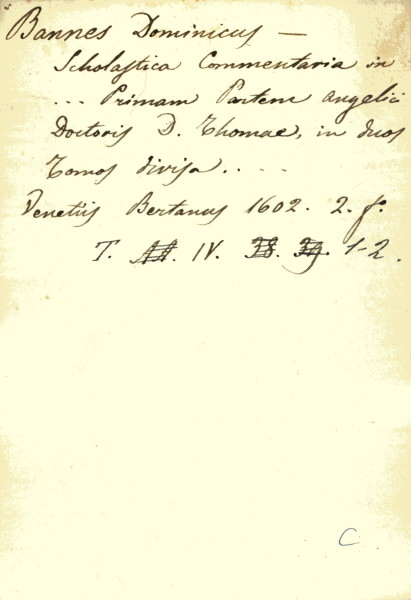 Bannes Dominicus —
Scholastica Commentaria in
... Primam Partem angelici
Doctoris D. Thomae, in duos
Tomos divisa. . . .
Venetiis Bertanus 1602. 2. f°.
T. IV. 1-2.
C